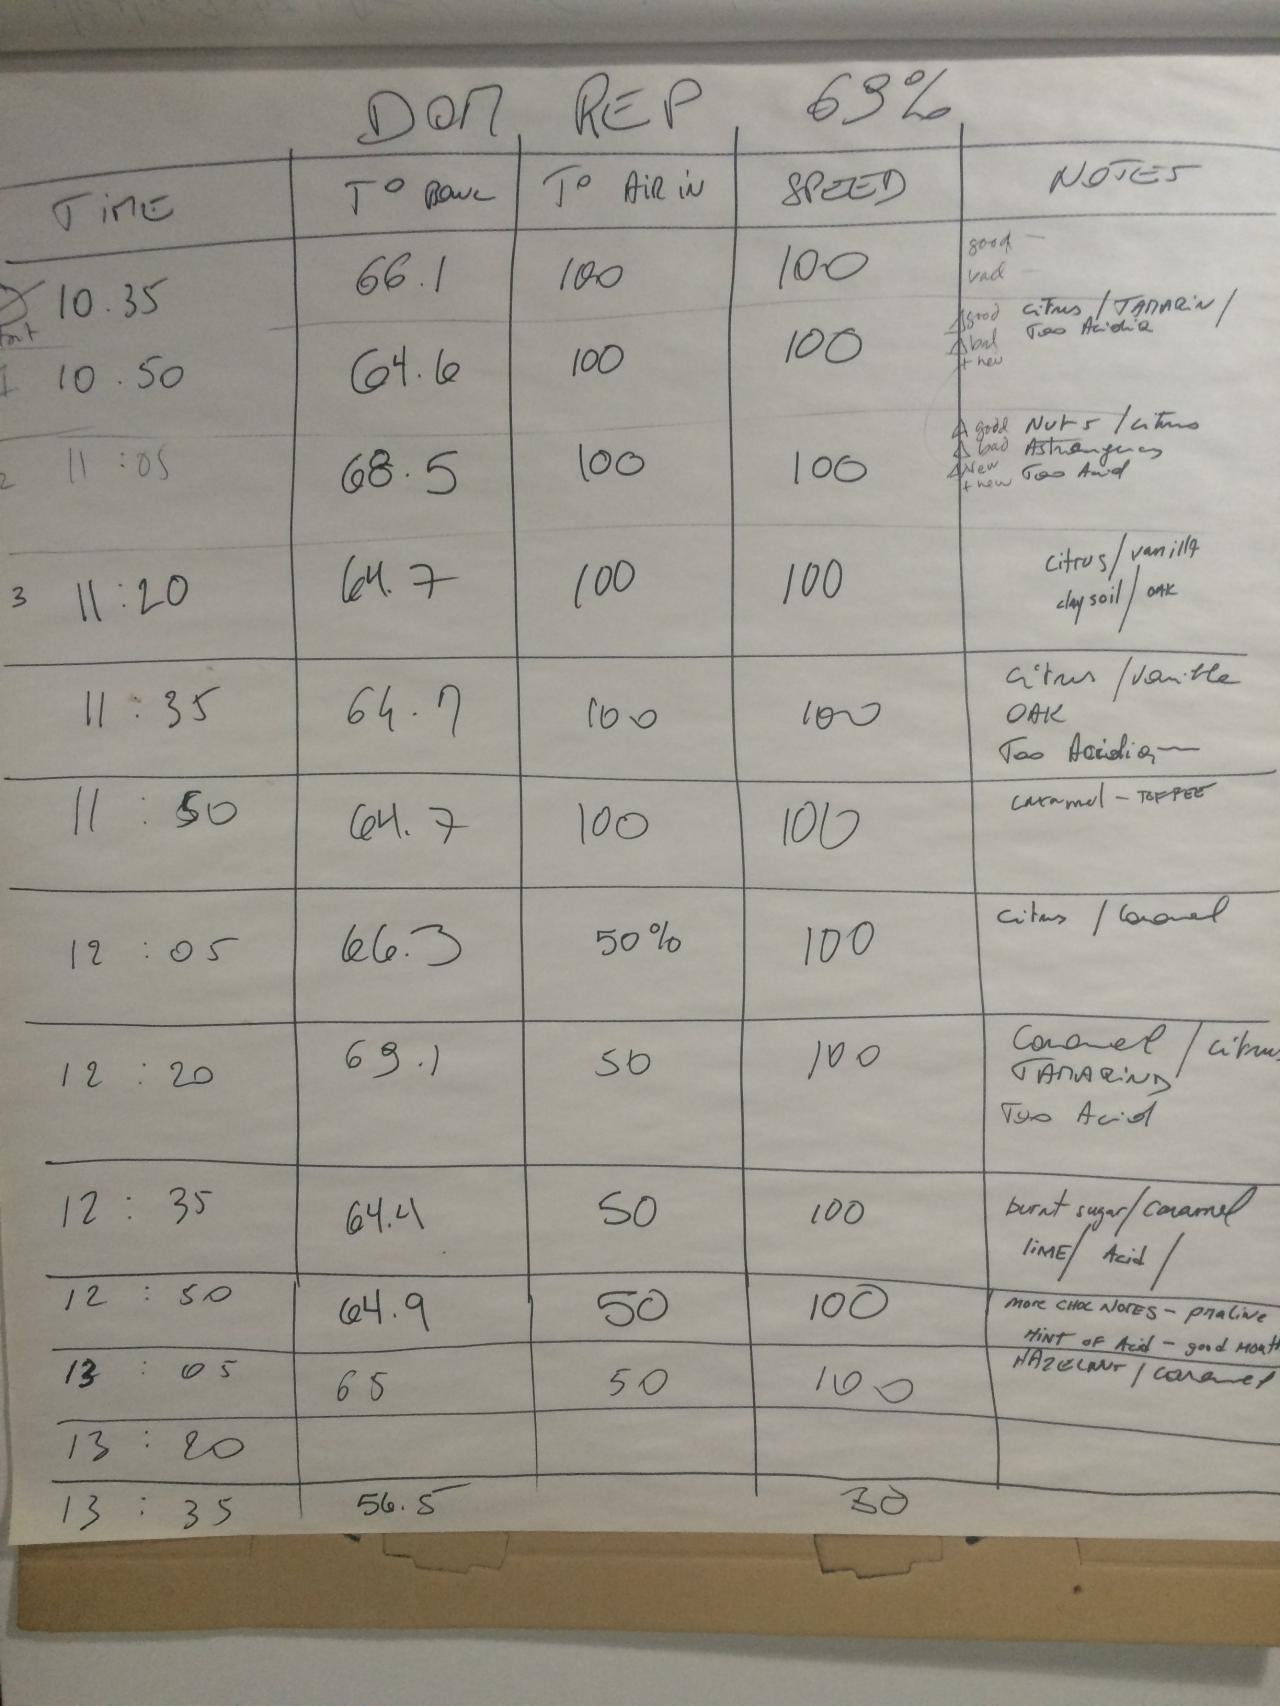 DOM REP 69%
TIME T° BOWL T° AIR IN SPEED NOTES
10.35 66.1 100 100 good -
bad -
10.50 64.6 100 100 △ good citrus / TAMARIN /
△ bad Too Acidic
+ new
2 11:05 68.5 100 100 △ good Nuts / citrus
△ bad Astringency
△ New Too Acid
+ new
3 11:20 64.7 100 100 citrus/vanilla
clay soil / OAK
11:35 64.7 100 100 citrus / vanille
OAK
Too Acidic
11:50 64.7 100 100 caramel - TOFFEE
12:05 66.3 50% 100 citrus / caramel
12:20 69.1 50 100 Caramel / citrus
TAMARIND
Too Acid
12:35 64.4 50 100 burnt sugar/caramel
lime/ Acid /
12:50 64.9 50 100 MORE CHOC NOTES - praline
HINT OF Acid - good Mouth
13:05 65 50 100 HAZELNUT / caramel
13:20
13:35 56.5 30